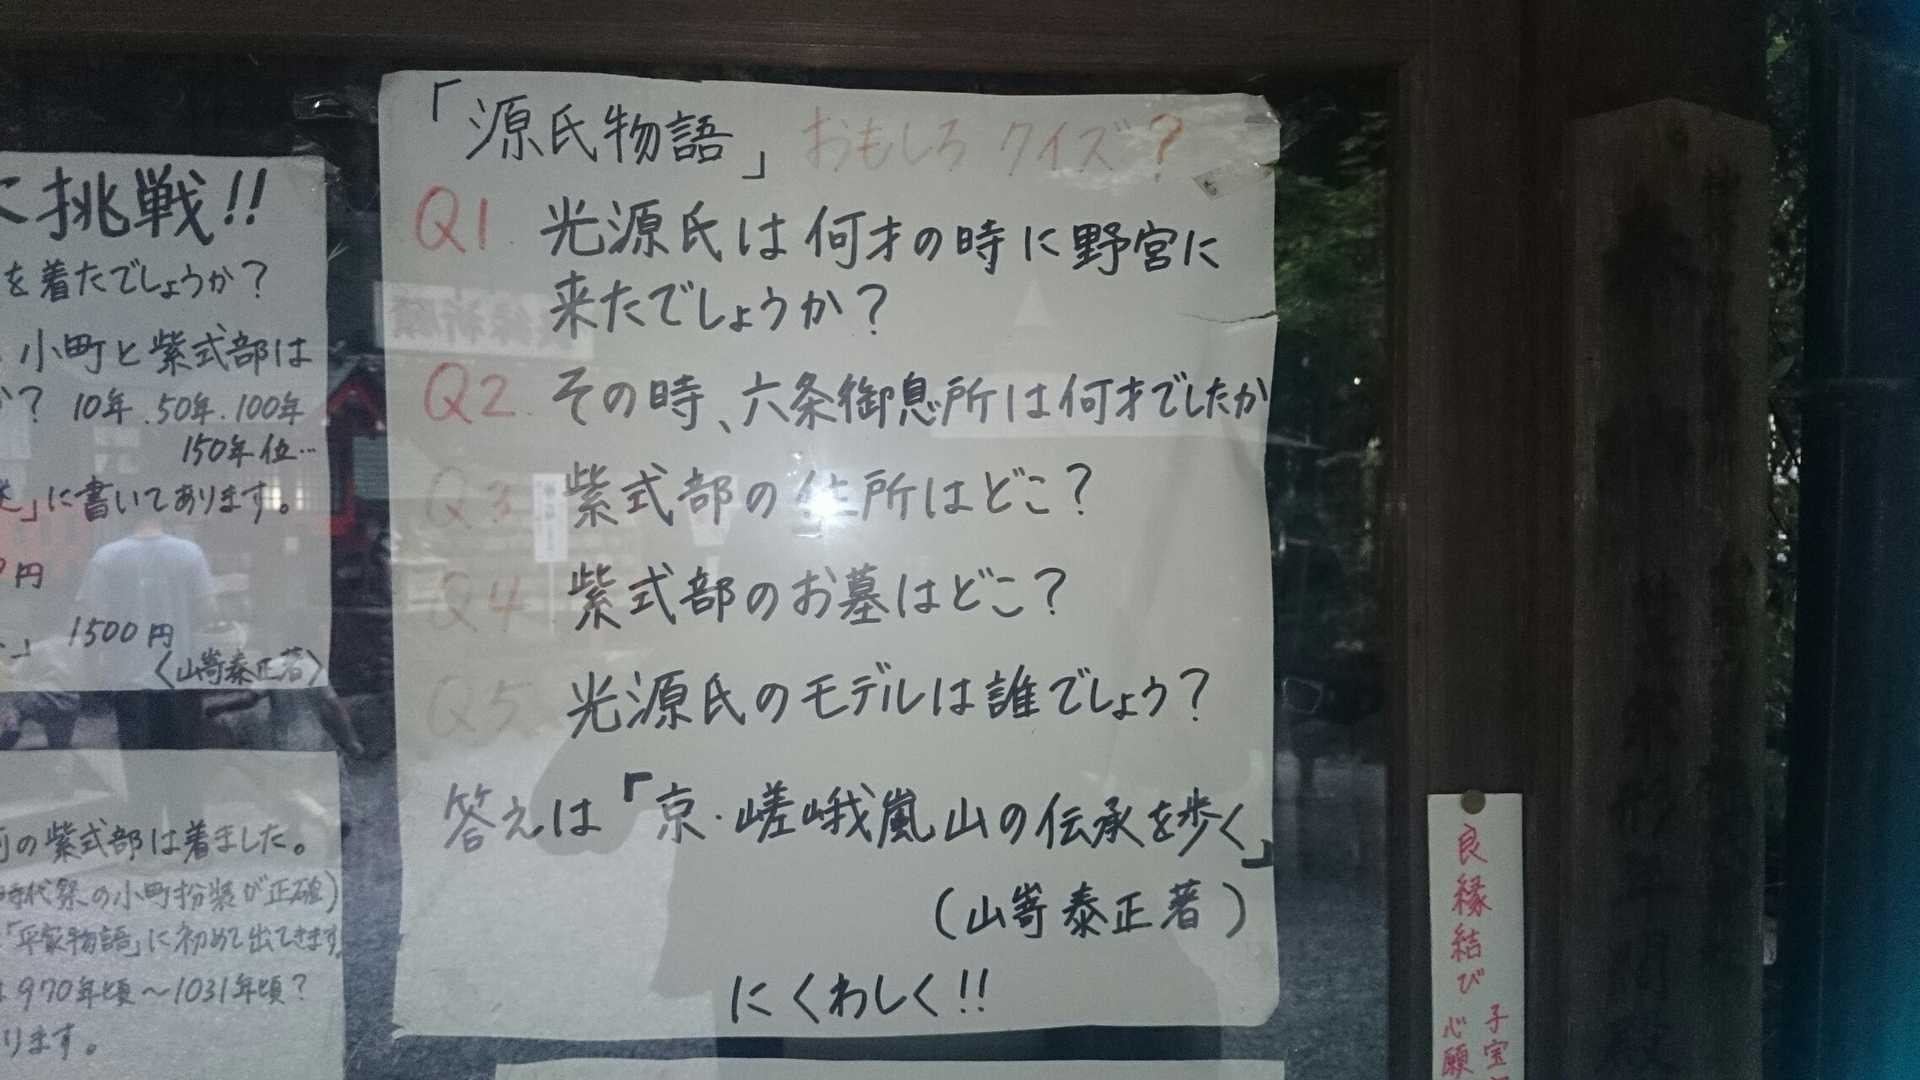 に挑戦!!
を着たでしょうか?
小町と紫式部は
か? 10年.50年.100年
150年位…
」に書いてあります。
円
」 1500円
(山嵜泰正著)
の紫式部は着ました。
時代祭の小町扮装が正確)
「平家物語」に初めて出てきます。
970年頃〜1031年頃?
ります。
「源氏物語」おもしろクイズ?
Q1. 光源氏は何才の時に野宮に
来たでしょうか?
Q2. その時、六条御息所は何才でしたか
Q3 紫式部の住所はどこ?
Q4 紫式部のお墓はどこ?
Q5 光源氏のモデルは誰でしょう?
答えは「京・嵯峨嵐山の伝承を歩く」
(山嵜泰正著)
にくわしく!!
良縁結び
子宝
心願